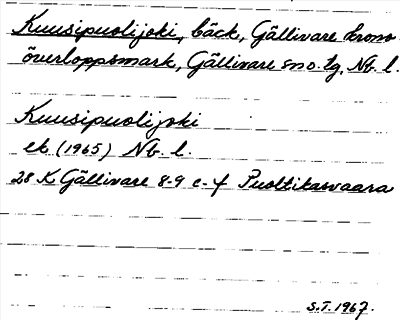 Kuusipuolijoki, bäck, Gällivare krono-
överloppsmark, Gällivare sn o. tg, Nb. l.
Kuusipuolijoki
ek (1965) Nb. l.
28 K Gällivare 8-9 e-f Puoltikasvaara
S.T. 1967.